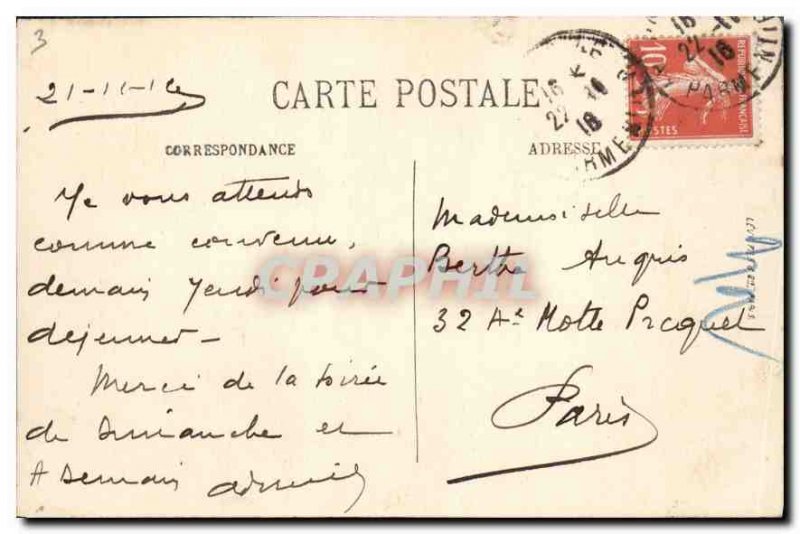 3
21-11-1
CARTE POSTALE
CORRESPONDANCE
ADRESSE
Je vous attends
comme convenu,
demain Jeudi pour
dejeuner -
Merci de la soirée
de Dimanche et
A Demain
Mademoiselle
Berthe Angris
32 Ae Motte Picquet
Paris
10
POSTES
16
22 - 11
16
PARMEN
16
22
16
CPARHIL